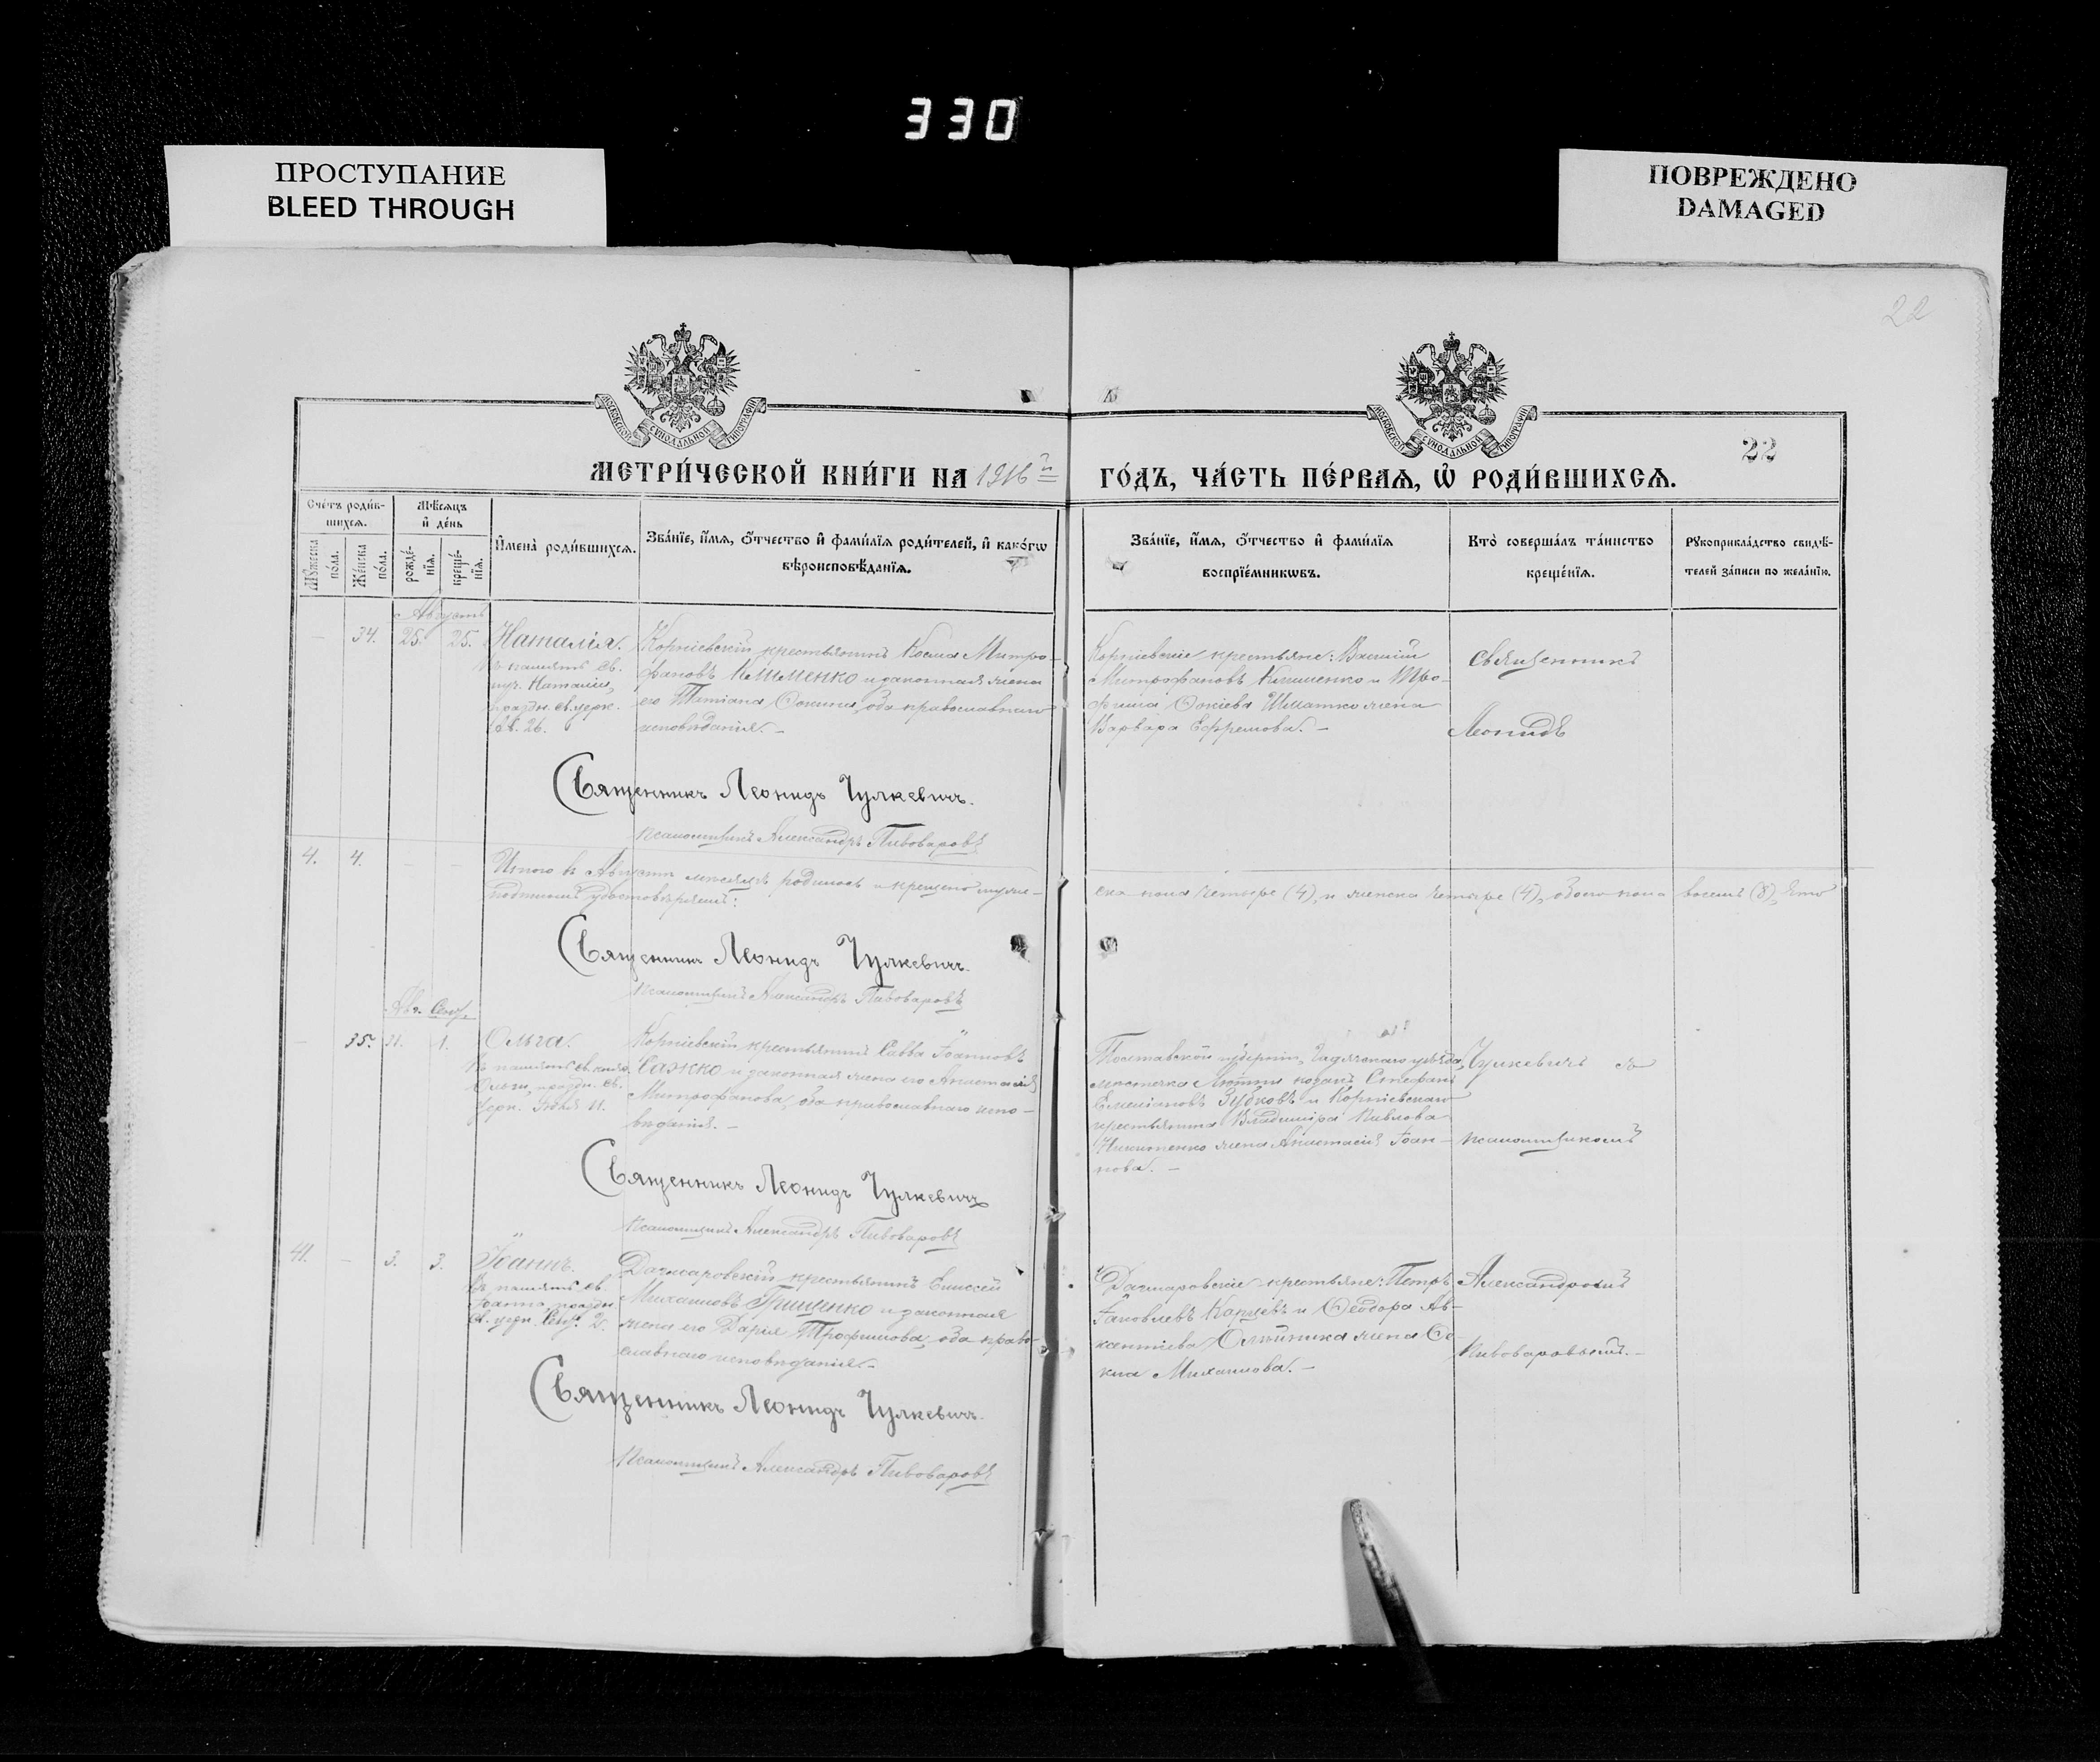 330
ПРОСТУПАНИЕ
BLEED THROUGH
ПОВРЕЖДЕНО
DAMAGED
22
МОСКОВСКОЙ СѴНОДАЛЬНОЙ ТИПОГРАФІИ
МОСКОВСКОЙ СѴНОДАЛЬНОЙ ТИПОГРАФІИ
22
МЕТРИ́ЧЕСКОЙ КНИ́ГИ НА 1916й
ГО́ДЪ, ЧА́СТЬ ПЕ́РВАѦ, Ѡ҆ РОДИ́ВШИХСѦ.
Сче́тъ роди́в-
шихсѧ.
Мѣ́сѧцъ
и҆ де́нь
Мꙋ́жеска по́ла.
Же́нска по́ла.
рожде́-
нїѧ.
креще́-
нїѧ.
И҆мена̀ роди́вшихсѧ.
Зва́нїе, и҆́мѧ, ѻ҆́тчество и҆ фами́лїѧ роди́телей, и҆ како́гѡ
вѣроисповѣ́данїѧ.
Зва́нїе, и҆́мѧ, ѻ҆́тчество и҆ фами́лїѧ
воспрїе́мникѡвъ.
Кто̀ соверша́лъ та́инство
креще́нїѧ.
Рꙋкоприкла́дство свидѣ́-
телей за́писи по жела́нїю.
Августъ
34. 25. 25. Наталія.
Въ память св.
муч. Наталіи,
праздн. св. церк.
Авг. 26.
Корніевскій крестьянинъ Косма Митро-
фановъ Клименко и законная жена
его Татіана Сокина, оба православнаго
исповѣданія. –
Корніевскіе крестьяне: Василій
Митрофановъ Клименко и Тро-
фима Шматко жена
Варвара Ефремова. –
Священникъ
Леонидъ
Священникъ Леонидъ Чулкевичъ.
Псаломщикъ Александръ Пивоваровъ
4. 4. Итого въ Августѣ мѣсяцѣ родилось и крещено муже-
ска пола четыре (4), и женска четыре (4), обоего пола восемь (8), что
подписомъ удостовѣряемъ:
Священникъ Леонидъ Чулкевичъ.
Псаломщикъ Александръ Пивоваровъ
Авг. Сент.
35. 31. 1. Ольга.
Въ память св. княг.
Ольги, праздн. св.
церк. Іюля 11.
Корніевскій крестьянинъ Савва Іоанновъ
Сажко и законная жена его Анастасія
Митрофанова, оба православнаго испо-
вѣданія. –
Полтавской губерніи, Гадячскаго уѣзда,
мѣстечка Лютни козакъ Стефанъ
Емеліановъ Зубковъ и Корніевскаго
крестьянина Владиміра Павлова
Никитенко жена Анастасія Іоан-
нова. –
Чулкевичъ съ
псаломщикомъ
Священникъ Леонидъ Чулкевичъ
Псаломщикъ Александръ Пивоваровъ
41. – 3. 3. Іоаннъ.
Въ память св.
Іоанна, праздн.
св. церк. Сент. 2.
крестьянинъ Елиссей
Михаиловъ Грищенко и законная
жена его Дарія Трофимова, оба право-
славнаго исповѣданія. –
крестьяне: Петръ
Іаковлевъ Карпевъ и Ѳеодора Ав-
ксентіева Олейника жена Ѳе-
кла Михаилова. –
Александромъ
Пивоваровымъ. –
Священникъ Леонидъ Чулкевичъ.
Псаломщикъ Александръ Пивоваровъ